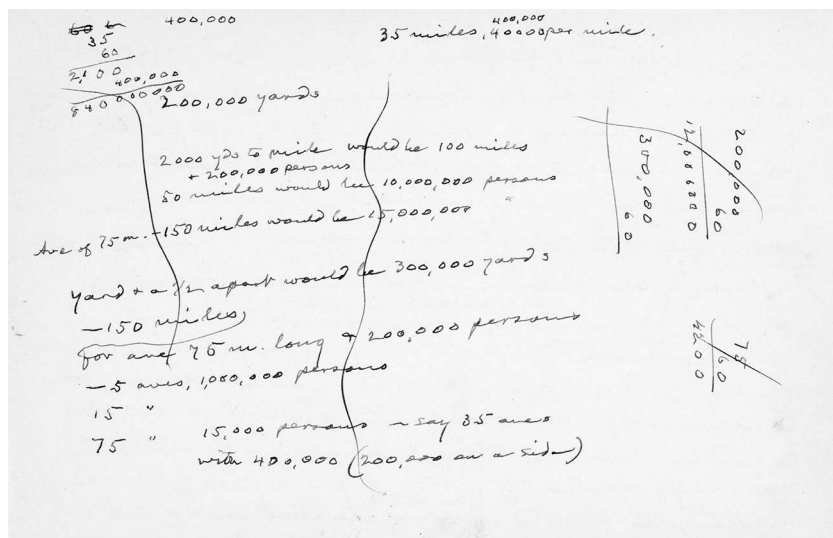 60 6 400,000
35
60
2,100
400,000
840000000
400,000
35 miles, 40000 per mile.
200,000 yards
2000 yds to mile would be 100 miles
+ 200,000 persons
50 miles would be 10,000,000 persons
Ave of 75 m. - 150 miles would be 15,000,000 "
Yard & a 1/2 apart would be 300,000 yards
- 150 miles
for ave 75 m. long & 200,000 persons
- 5 aves, 1,000,000 persons
15 "
75 " 15,000 persons - say 35 aves
with 400,000 (200,000 on a side)
200,000
60
12,000000
300,000
60
75
60
4200